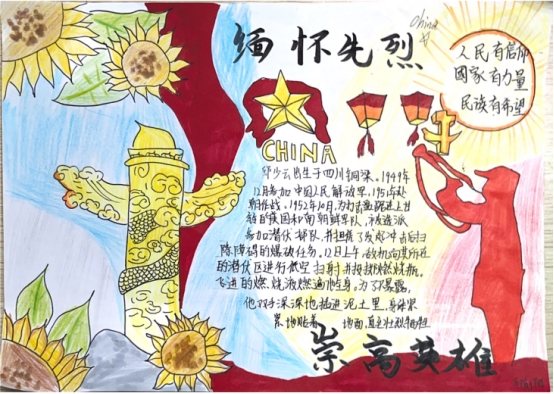 缅怀先烈
china
人民有信仰
国家有力量
民族有希望
CHINA
邱少云出生于四川铜梁。1949年
12月参加中国人民解放军,1951年赴
朝作战。1952年10月,为
美国和南朝鲜军队,被选派
参加潜伏部队,并担负了发起冲击后扫
除障碍的爆破任务。12日上午,敌机向其所在
的潜伏区进行低空扫射并投掷燃烧瓶。
飞进的燃烧液燃遍他全身,为了不暴露,
他双手深深地插进泥土里,身体紧
紧地贴着 地面,直至壮烈牺牲
崇高英雄